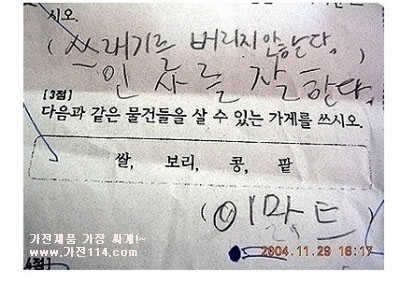 시오.
(쓰래기를 버리지 안한다.
인사를 잘한다.
[3점]
다음과 같은 물건들을 살 수 있는 가게를 쓰시오.
쌀, 보리, 콩, 팥
(이마트)
가전제품 가장 싸게!~
www.가전114.com
2004.11.29 16:17